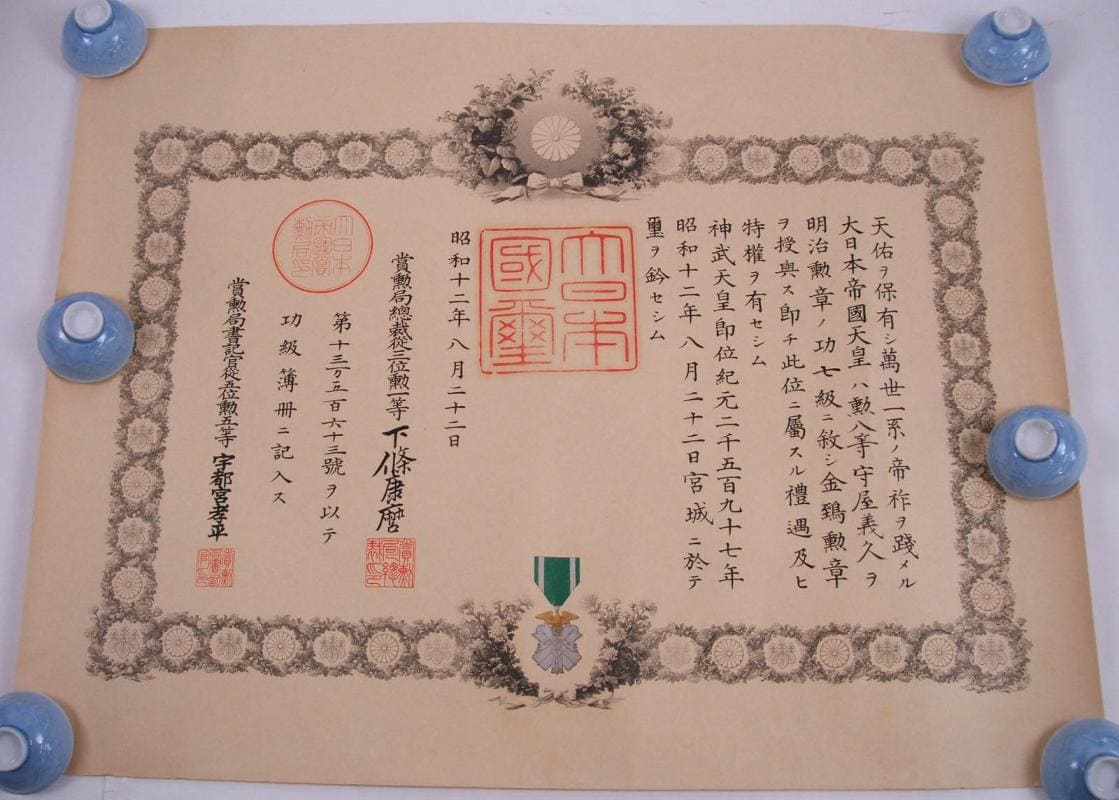 天佑ヲ保有シ萬世一系ノ帝祚ヲ踐メル
大日本帝國天皇ハ勲八等守屋義久ヲ
明治勲章ノ功七級ニ敘シ金鵄勲章
ヲ授與ス即チ此位ニ屬スル禮遇及ヒ
特權ヲ有セシム
神武天皇即位紀元二千五百九十七年
昭和十二年八月二十二日宮城ニ於テ
璽ヲ鈐セシム
大日本
國璽
昭和十二年八月二十二日
賞勲局總裁從三位勲一等 下條康麿
賞勲局總裁印
第十三万五百六十三號ヲ以テ
功級簿冊ニ記入ス
大日本帝國賞勲局印
賞勲局書記官從五位勲五等 宇都宮孝平
賞勲局書記官印